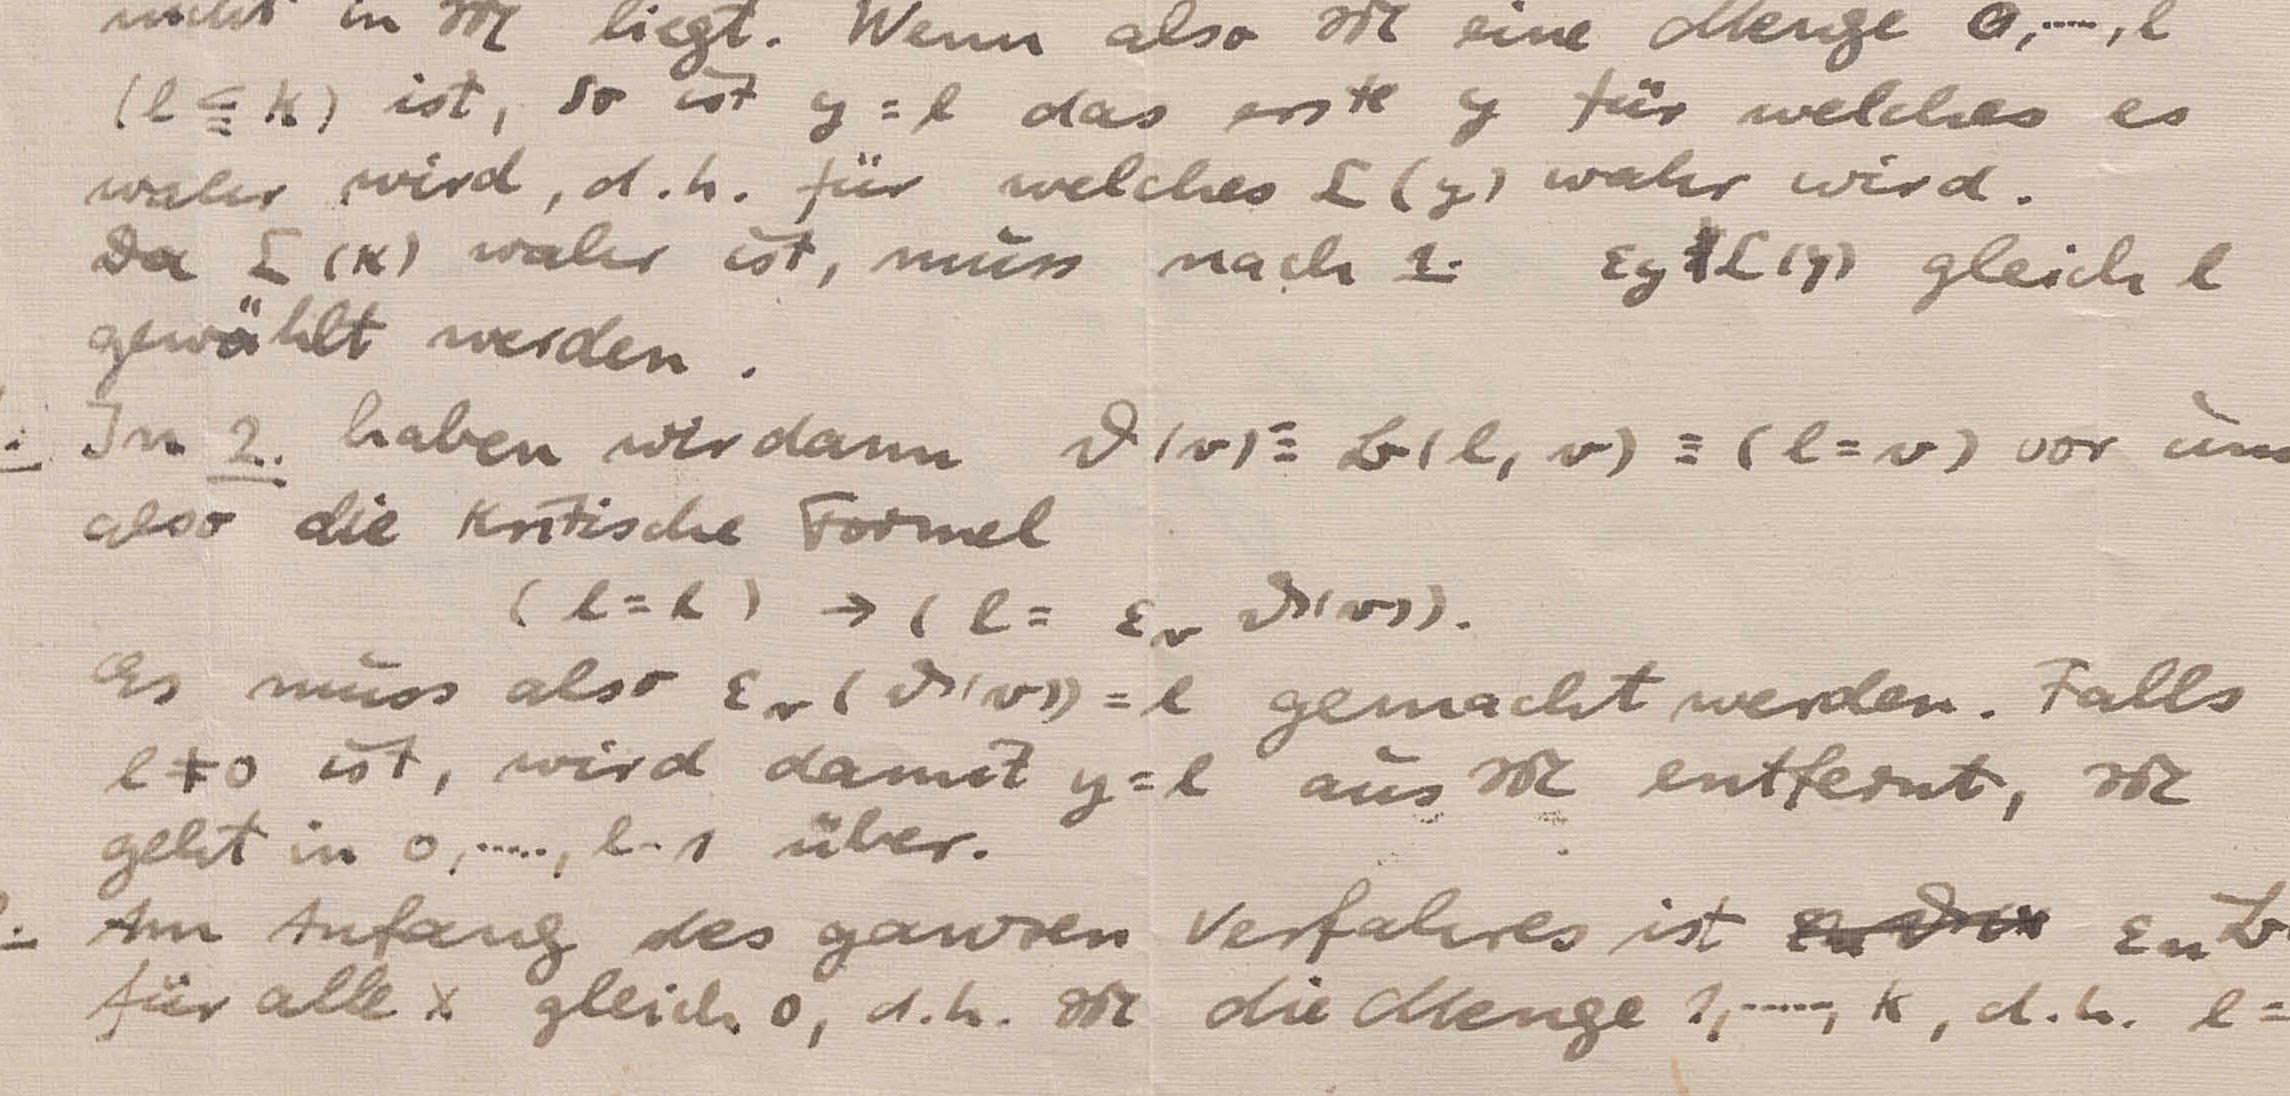 nicht in 𝔐 liegt. Wenn also 𝔐 eine Menge 0,....,l
(l ≦ k) ist, so ist y = l das erste y für welches es
wahr wird, d.h. für welches L(y) wahr wird.
Da L(k) wahr ist, muss nach 1. εy L(y) gleich l
gewählt werden.
In 2. haben wir dann ϑ(v) ≡ b(l, v) ≡ (l=v) vor uns
also die kritische Formel
(l=l) → (l = ε_v ϑ(v)).
Es muss also ε_v(ϑ(v)) = l gemacht werden. Falls
l ≠ 0 ist, wird damit y = l aus 𝔐 entfernt, 𝔐
geht in 0,....., l-1 über.
Am Anfang des ganzen Verfahres ist ε_u b
für alle x gleich 0, d.h. 𝔐 die Menge 1,....., k, d.h. l =